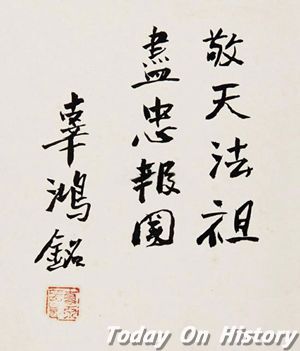 敬天法祖
盡忠報國
辜鴻銘
Today On History